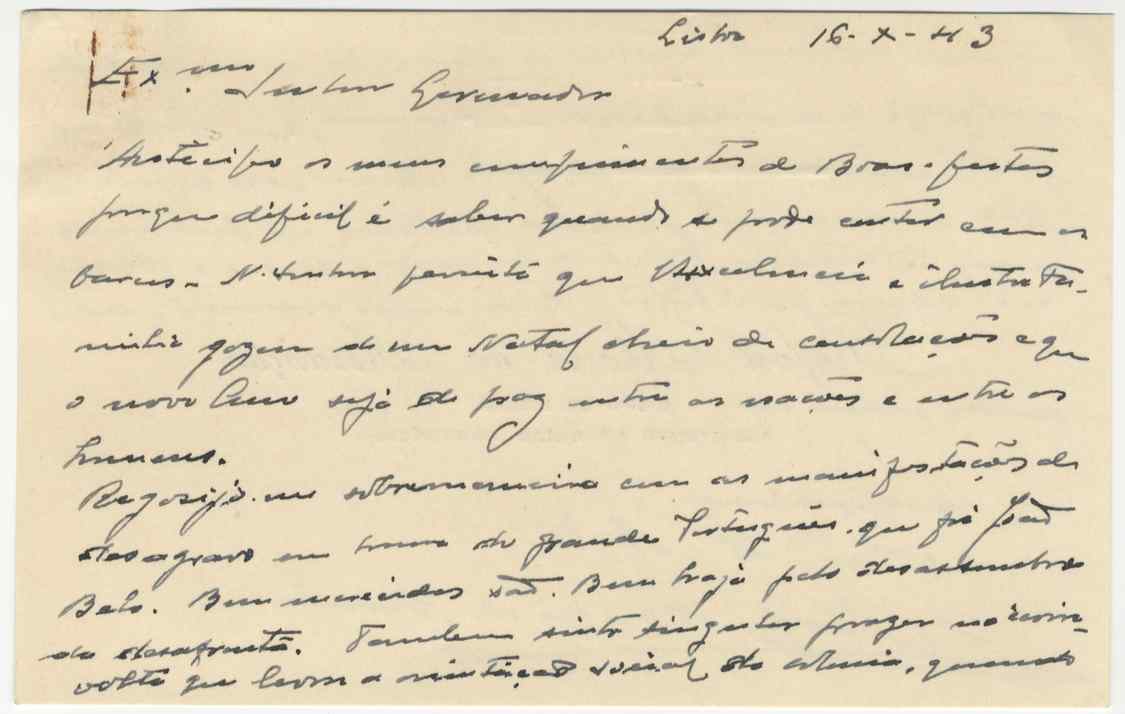 Lisboa 16-X-43
Exmo Senhor Governador
Antecipo os meus cumprimentos de Boas-festas
porque dificil é saber quando se pode contar com os
barcos. N. Senhor permita que V. Excelencia e ilustre Fa-
milia gozem de um Natal cheio de consolações e que
o novo Ano seja de paz entre as nações e entre os
homens.
Regosijo-me sobremaneira com as manifestações de
desagravo em honra do grande Português que foi João
Belo. Bem merecidas são. Bem haja pelo desassombro
da desafronta. Tambem sinto singular prazer na
volta que levou a orientação social da colonia, quando